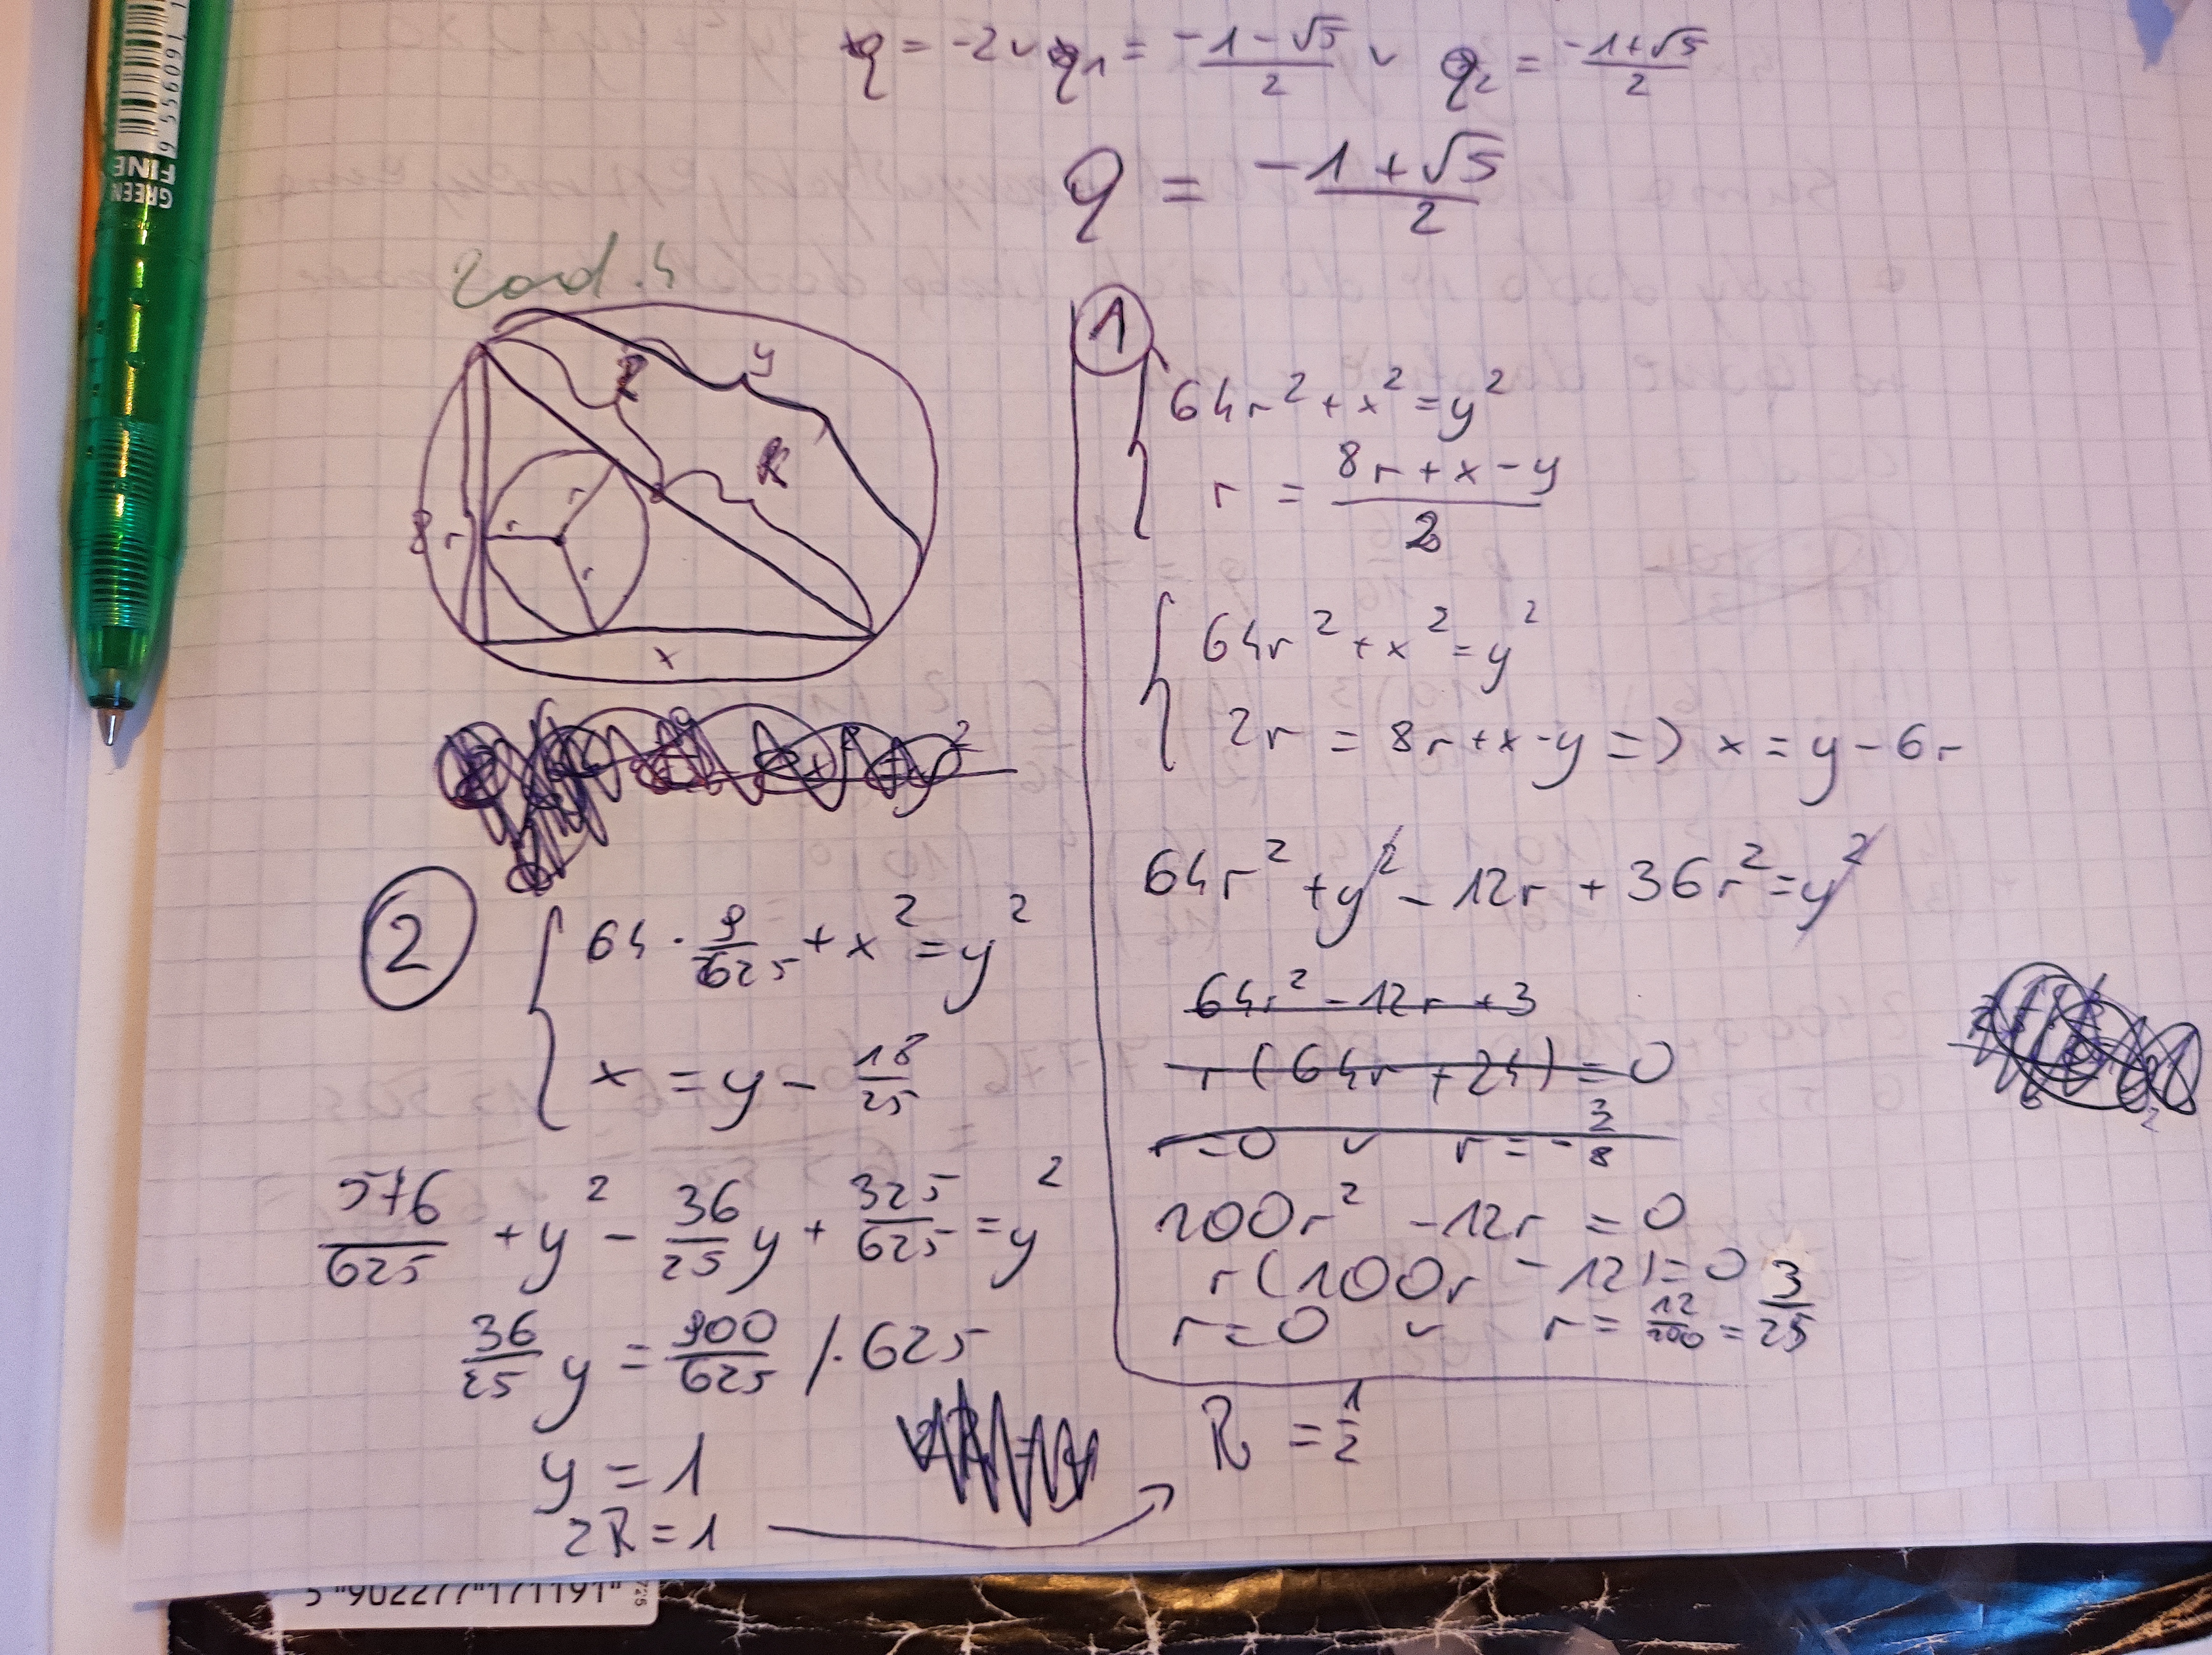 q = -2 ∨ q₁ = (-1-√5)/2 ∨ q₂ = (-1+√5)/2
q = (-1+√5)/2
zad. 4
R
y
R
8r
r
r
r
x
①
64r² + x² = y²
r = (8r + x - y)/2
64r² + x² = y²
2r = 8r + x - y => x = y - 6r
64r² + y² - 12r + 36r² = y²
64r² - 12r + 3
r(64r + 24) = 0
r = 0 ∨ r = -3/8
100r² - 12r = 0
r(100r - 12) = 0
r = 0 ∨ r = 12/100 = 3/25
②
64 · 9/625 + x² = y²
x = y - 18/25
576/625 + y² - 36/25 y + 325/625 = y²
36/25 y = 900/625 /· 625
y = 1
2R = 1
R = 1/2
GREEN
FINE
5 "902277"171191"